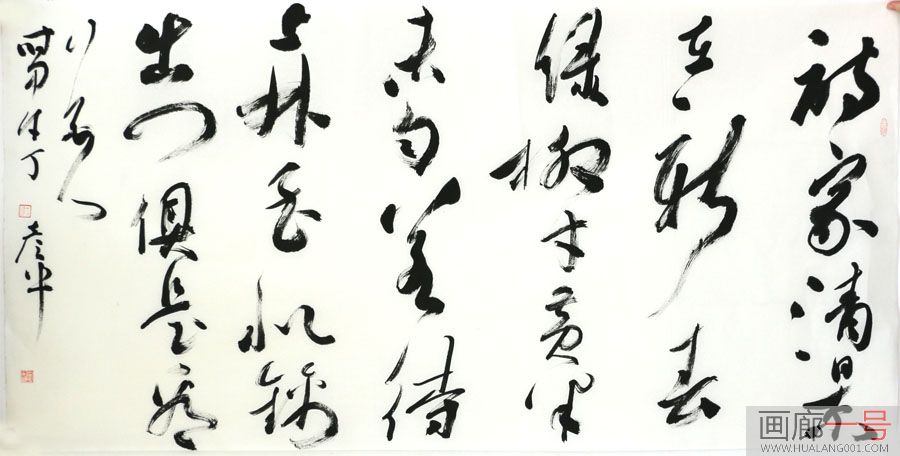 詩家清景
在新春
绿柳才黄半
未匀若待
上林花似錦
出门俱是看
花人
画廊一号
WWW.HUALANG001.COM